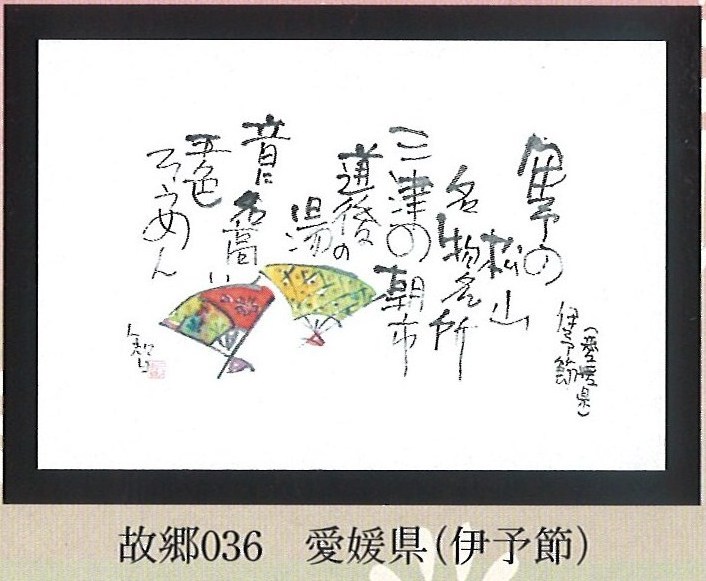 伊予の
松山
名物名所
三津の朝市
道後の
湯
音に
名高い
五色
そうめん
(愛媛県)
伊予節
故郷036 愛媛県(伊予節)